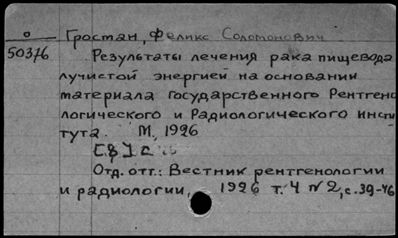 о Гростан, Феликс Соломонович
50376 Результаты лечения рака пищевода
лучистой энергией на основании
материала Государственного Рентгено
логического и Радиологического Инсти
тута. М, 1926
[8] с
Отд. отт.: Вестник рентгенологии
и радиологии, 1926 т. 4 № 2, с. 39-46